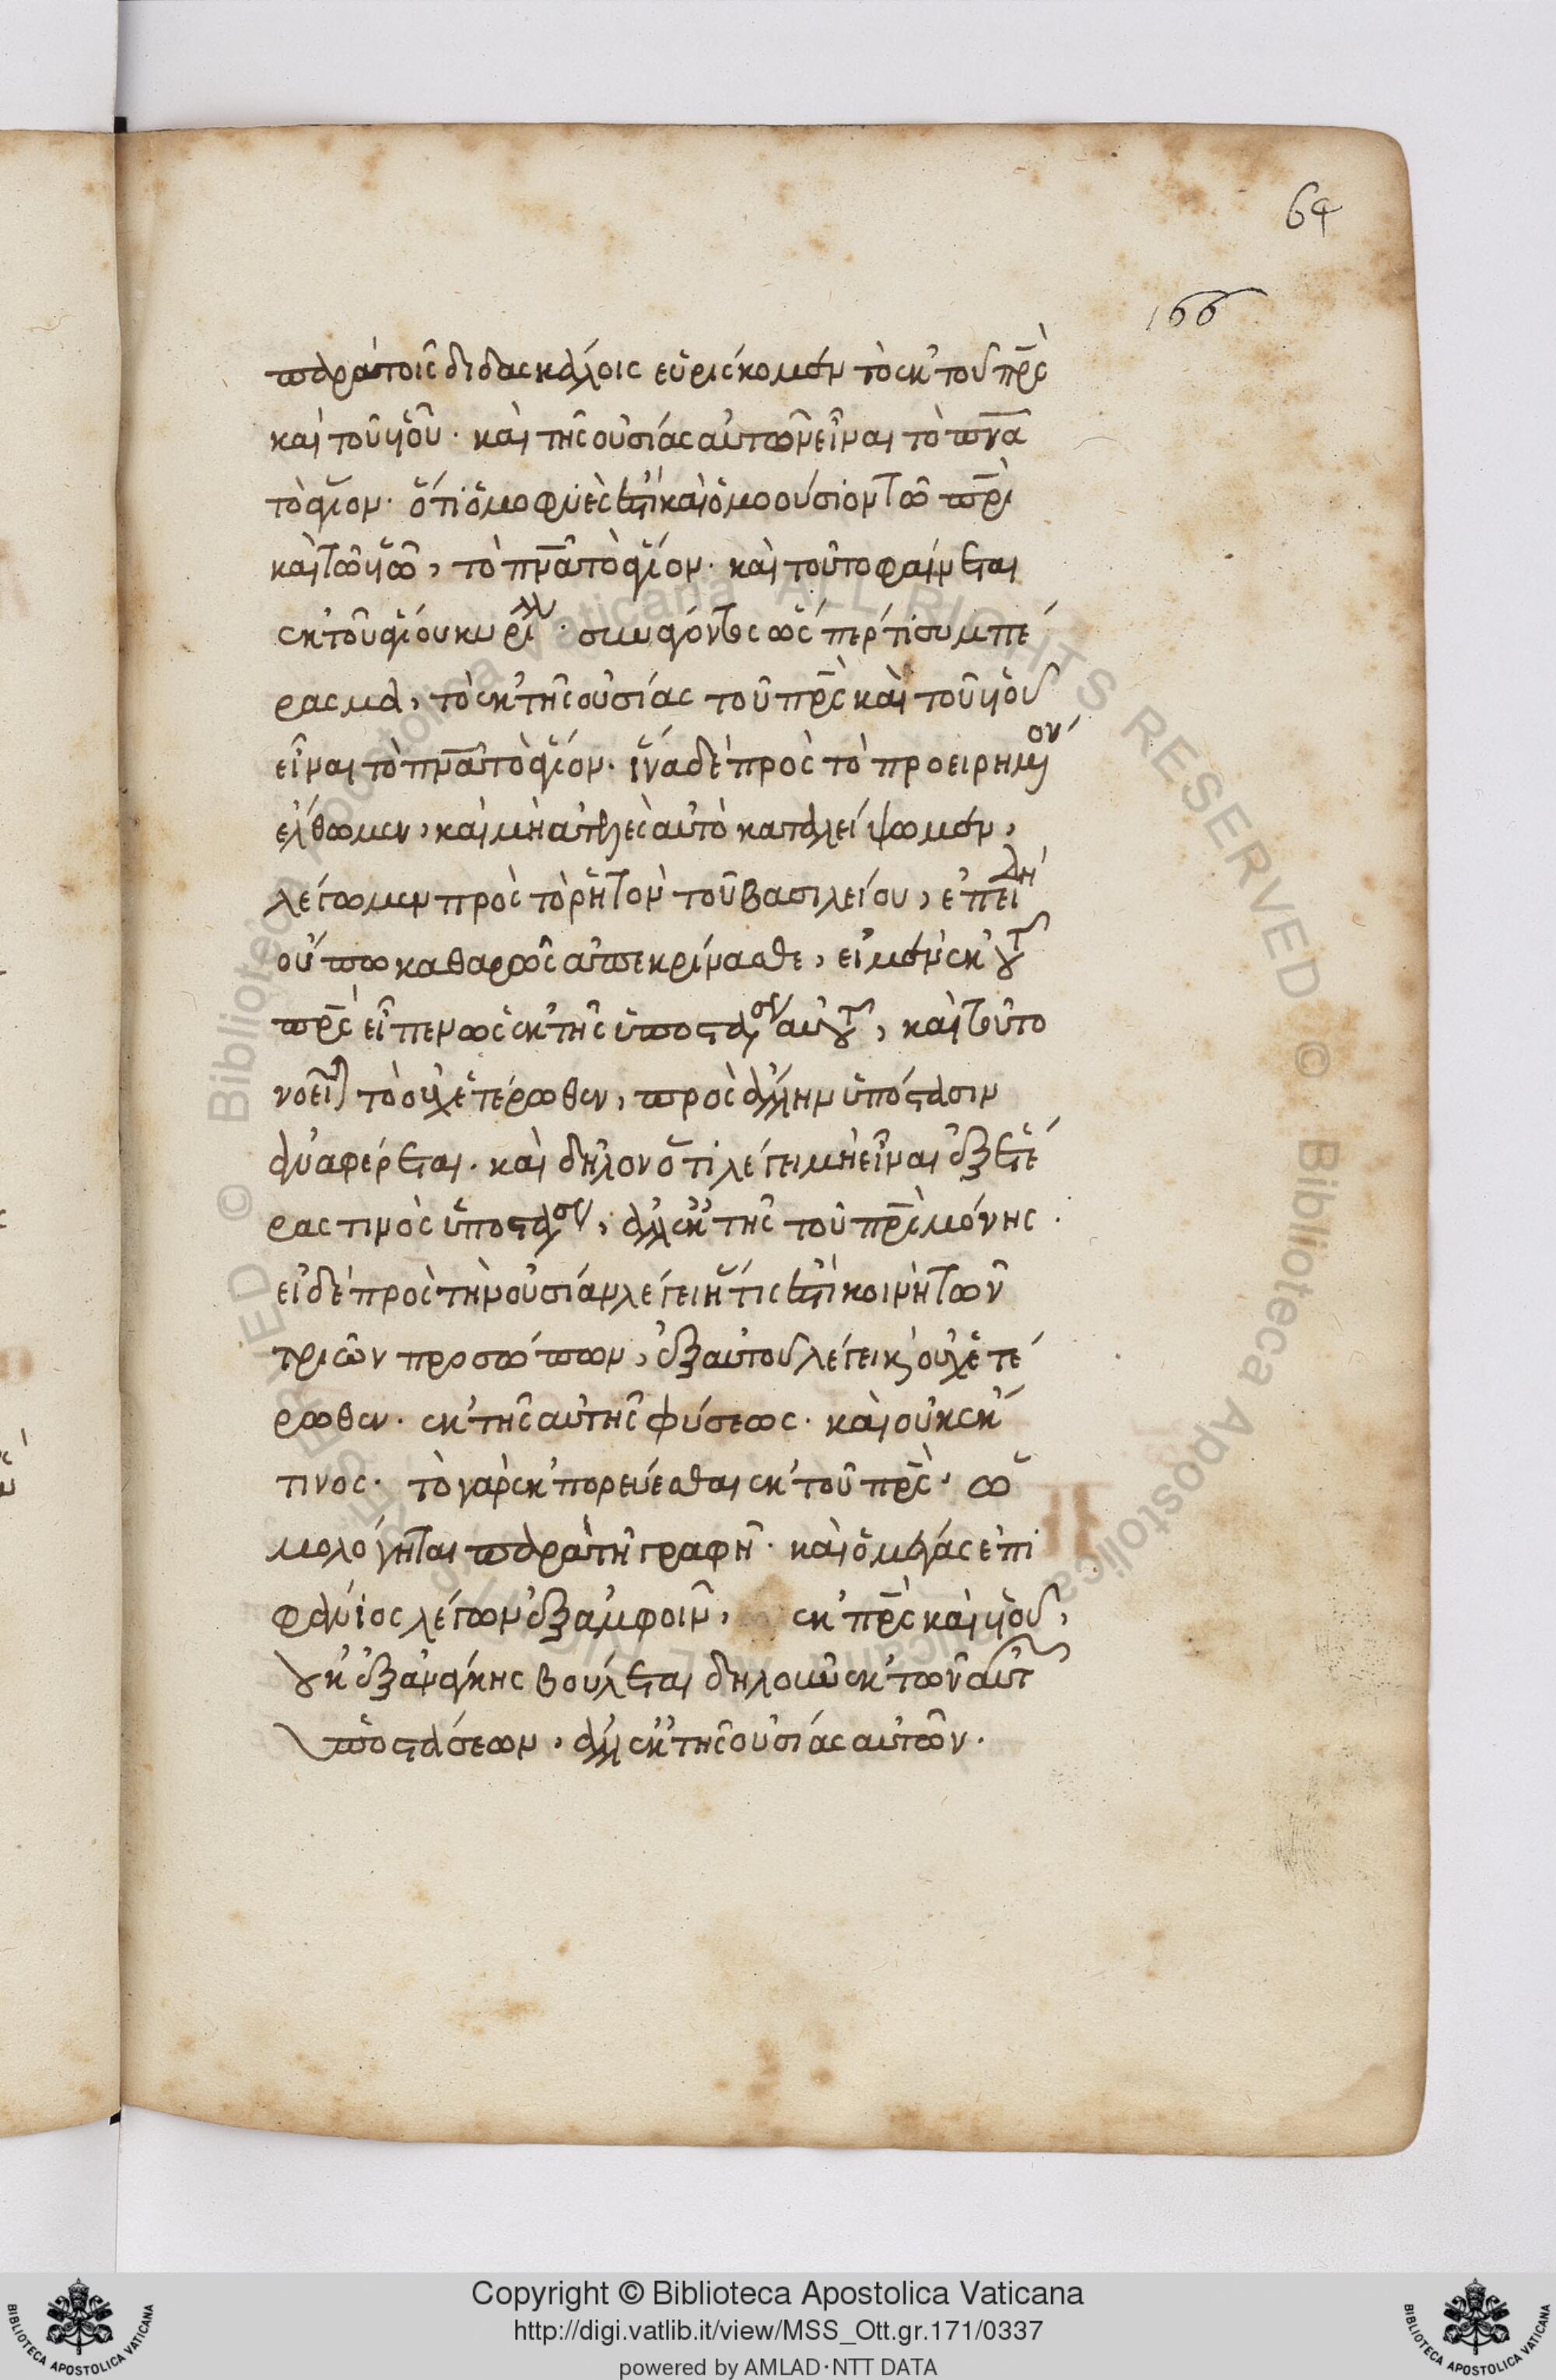 64
166
παρὰ τοῖς διδασκάλοις εὑρίσκομεν τὸ ἐκ τοῦ πρς
καὶ τοῦ υἱοῦ· καὶ τῆς οὐσίας αὐτῶν εἶναι τὸ πνα
τὸ ἅγιον· ὅτι ὁμοφυές ἐστι καὶ ὁμοούσιον τῶ πρι
καὶ τῶ υἱῶ, τὸ πνα τὸ ἅγιον· καὶ τοῦτο φαίνεται
ἐκ τοῦ ἁγίου κυρίλλ· συνάγοντος ὥσπερ τι συμπέ
ρασμα, τὸ ἐκ τῆς οὐσίας τοῦ πρς καὶ τοῦ υἱοῦ
εἶναι τὸ πνα τὸ ἅγιον· ἵνα δὲ πρὸς τὸ προειρημένον
ἔλθωμεν, καὶ μὴ ἀτελὲς αὐτὸ καταλείψωμεν,
λέγωμεν πρὸς τὸ ῥητὸν τοῦ βασιλείου, ἐπειδὴ
οὔπω καθαρῶς ἀπεκρίνασθε, εἰ μὲν ἐκ τοῦ
πρς εἶπεν ὡς ἐκ τῆς ὑποστάσεως αὐτοῦ, καὶ τοῦτο
νοεῖται τὸ οὐχ ἑτέρωθεν, πρὸς ἄλλην ὑπόστασιν
ἀναφέρεται· καὶ δῆλον ὅτι λέγει μὴ εἶναι ἐξ ἑτέ
ρας τινὸς ὑποστάσεως, ἀλλ' ἐκ τῆς τοῦ πρς μόνης·
εἰ δὲ πρὸς τὴν οὐσίαν λέγει ἥτις ἐστὶ κοινὴ τῶν
τριῶν προσώπων, ἐξ αὐτοῦ λέγει κ οὐχ ἑτέ
ρωθεν· ἐκ τῆς αὐτῆς φύσεως· καὶ οὐκ ἔκ
τινος· τὸ γὰρ ἐκπορεύεσθαι ἐκ τοῦ πρς, ὡ
μολόγηται παρὰ τῆ γραφῆ· καὶ ὁ μέγας ἐπι
φάνιος λέγων ἐξ ἀμφοῖν, ἐκ πρς καὶ υἱοῦ,
οὐκ ἐξ ἀνάγκης βούλεται δηλοῦν ἐκ τῶν αὐτῶν
ὑποστάσεων, ἀλλ' ἐκ τῆς οὐσίας αὐτῶν.
Copyright © Biblioteca Apostolica Vaticana
http://digi.vatlib.it/view/MSS_Ott.gr.171/0337
powered by AMLAD·NTT DATA